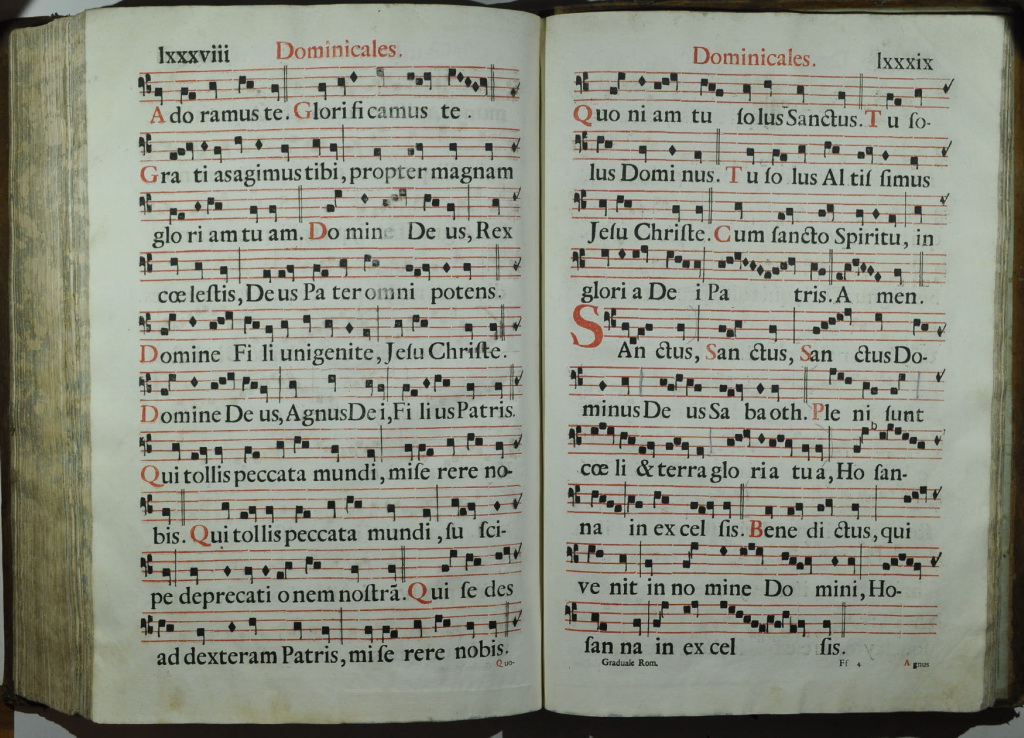 lxxxviii Dominicales.
Ado ramus te. Glori fi camus te .
Gra ti as agimus tibi, propter magnam
glo ri am tu am. Do mine De us, Rex
cœ leſtis, De us Pa ter omni potens.
Domine Fi li unigenite, Jeſu Chriſte.
Domine De us, Agnus De i, Fi li us Patris.
Qui tollis peccata mundi, miſe rere no-
bis. Qui tollis peccata mundi , ſu ſci-
pe deprecati onem noſtrā. Qui ſe des
ad dexteram Patris, mi ſe rere nobis.
Quo-
Dominicales. lxxxix
Quo ni am tu ſo lus Sanctus. Tu ſo-
lus Domi nus. Tu ſo lus Al tiſ ſimus
Jeſu Chriſte. Cum ſancto Spiritu, in
glori a De i Pa tris. A men.
SAn ctus, San ctus, San ctus Do-
minus De us Sa ba oth. Ple ni ſunt
cœ li & terra glo ria tu a, Ho ſan-
na in ex cel ſis. Bene di ctus, qui
ve nit in no mine Do mini, Ho-
ſan na in ex cel ſis.
Graduale Rom. Ff 4 Agnus